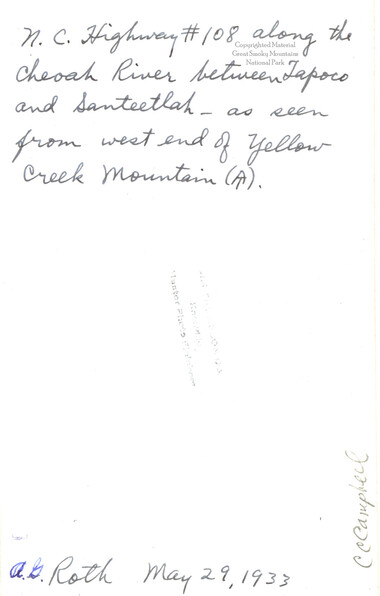 N. C. Highway #108 along the
Copyrighted Material
Great Smoky Mountains
National Park
Cheoah River between Tapoco
and Santeetlah – as seen
from west end of Yellow
Creek Mountain (A).
CCCampbell
A.G. Roth May 29, 1933